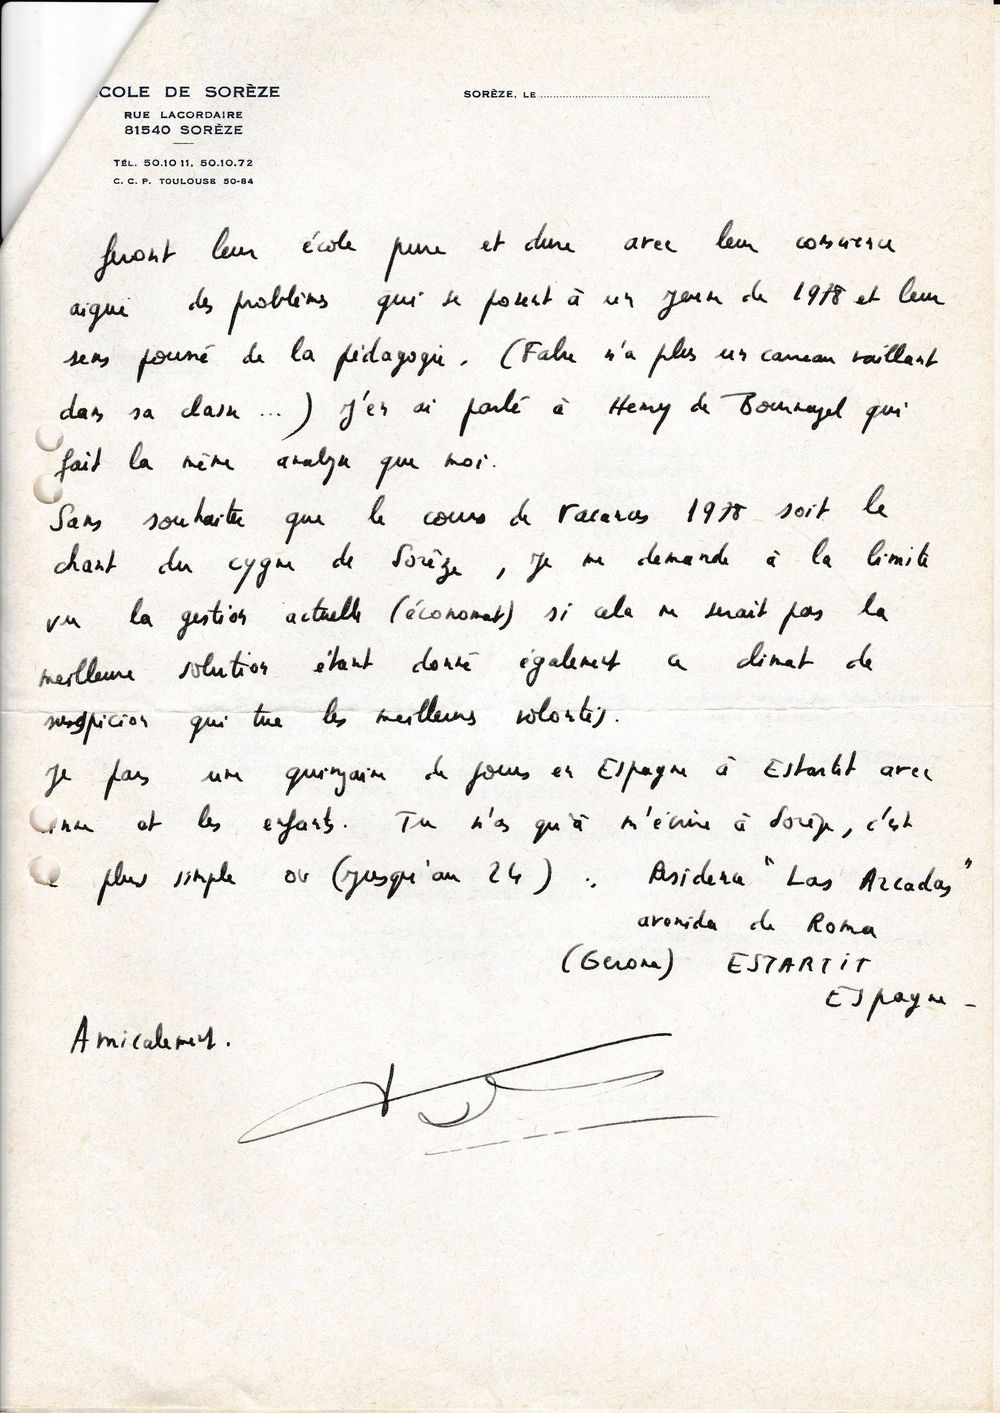 COLE DE SORÈZE
RUE LACORDAIRE
81540 SORÈZE
TÉL. 50.10 11, 50.10.72
C. C. P. TOULOUSE 50-84
SORÈZE, LE
feront leur école pure et dure avec leur conscience
aigue des problèmes qui se posent à un jeune de 1978 et leur
sens poussé de la pédagogie. (Fabre n'a plus un carreau vaillant
dans sa classe ...) J'en ai parlé à Henry de Bournazel qui
fait la même analyse que moi.
Sans souhaiter que le cours de Vacances 1978 soit le
chant du cygne de Sorèze, je me demande à la limite
vu la gestion actuelle (économat) si cela ne serait pas la
meilleure solution étant donné également ce climat de
suspicion qui tue les meilleures volontés.
Je pars une quinzaine de jours en Espagne à Estartit avec
et les enfants. Tu n'as qu'à m'écrire à Sorèze, c'est
plus simple ou (jusqu'au 24) : "Las Arcadas"
avenida de Roma
(Gerone) ESTARTIT
Espagne -
Amicalement.